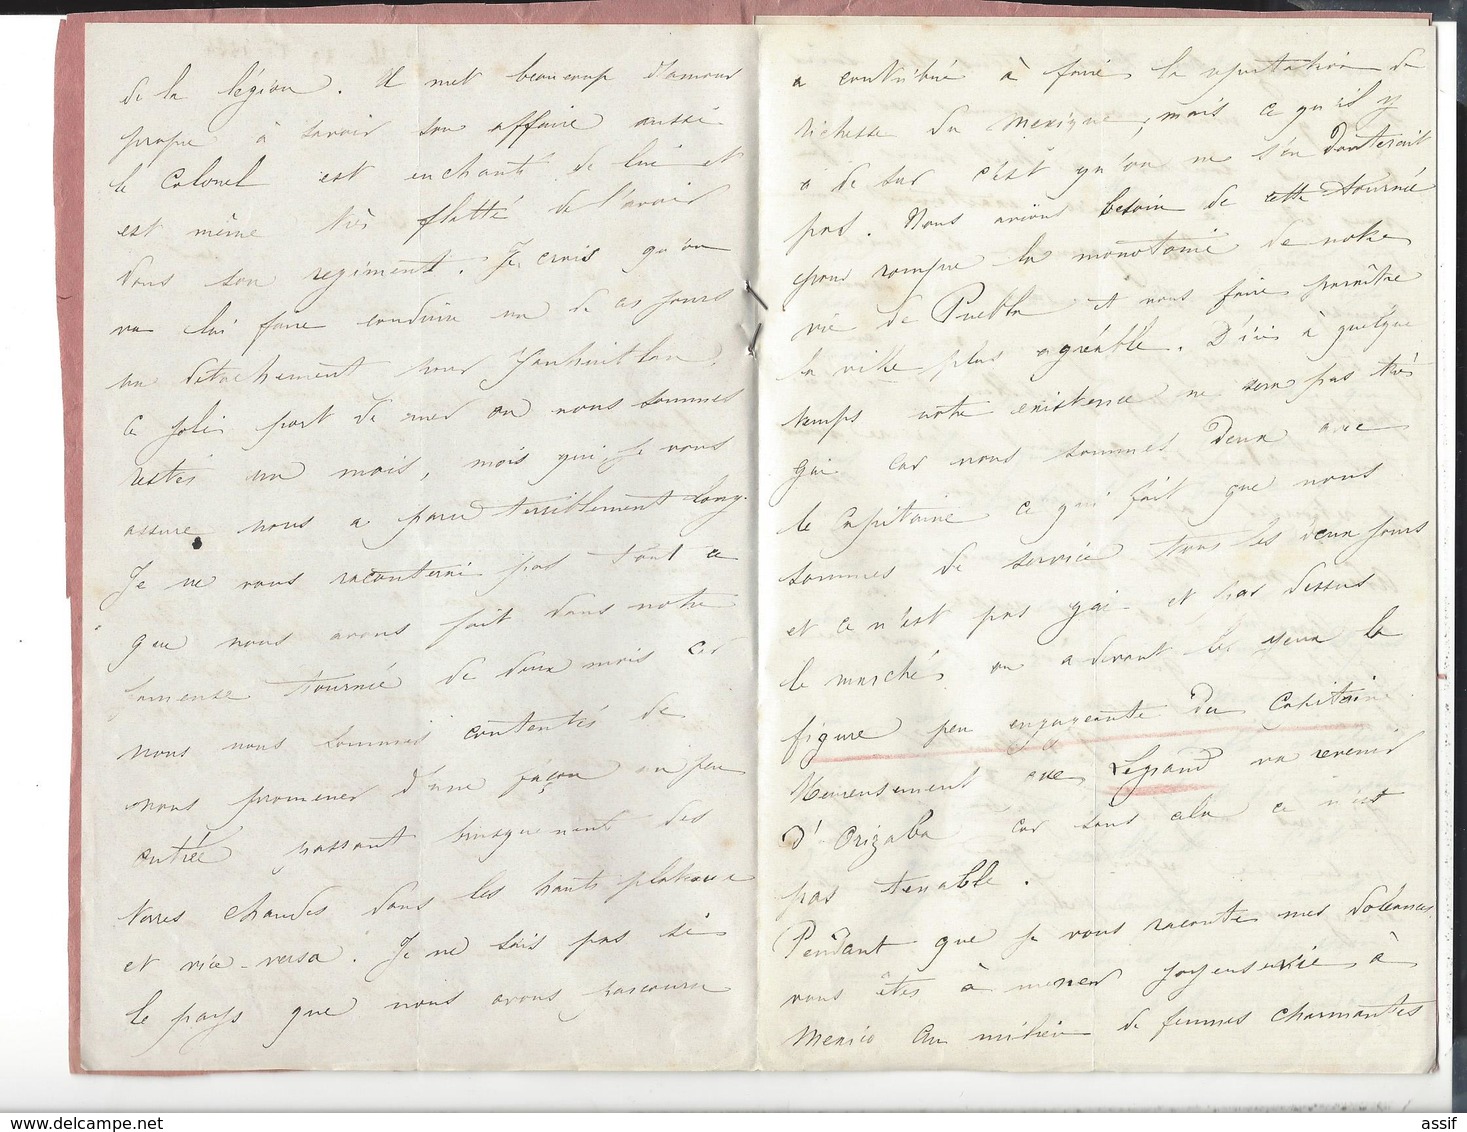 de la légion. Il met beaucoup d'amour
propre à savoir son affaire aussi
le Colonel est enchanté de lui et
est même très flatté de l'avoir
dans son régiment. Je crois qu'on
va lui faire conduire un de ces jours
un détachement pour Yanhuitlan,
ce joli port de mer où nous sommes
restés un mois, mois qui je vous
assure nous a paru terriblement long.
Je ne vous raconterai pas tout ce
que nous avons fait dans notre
fameuse tournée de deux mois car
nous nous sommes contentés de
nous promener d'une façon un peu
outrée passant brusquement des
terres chaudes dans les hauts plateaux
et vice-versa. Je ne sais pas si
le pays que nous avons parcouru
a contribué à faire la réputation de
richesse du Mexique, mais ce qu'il y
a de sur c'est qu'on ne s'en douterait
pas. Nous avions besoin de cette tournée
pour rompre la monotonie de notre
vie de Puebla et nous faire paraître
la ville plus agréable. D'ici à quelque
temps notre existence ne sera pas très
gai car nous sommes deux avec
le Capitaine ce qui fait que nous
sommes de service tous les deux jours
et ce n'est pas gai et pas dessus
le marché, on a devant les yeux la
figure peu engageante du Capitaine
Heureusement que Legrand va revenir
d'Orizaba car sans cela ce n'est
pas tenable.
Pendant que je vous raconte mes doléances
vous êtes à mener joyeuse vie à
Mexico au milieu de femmes charmantes
assif